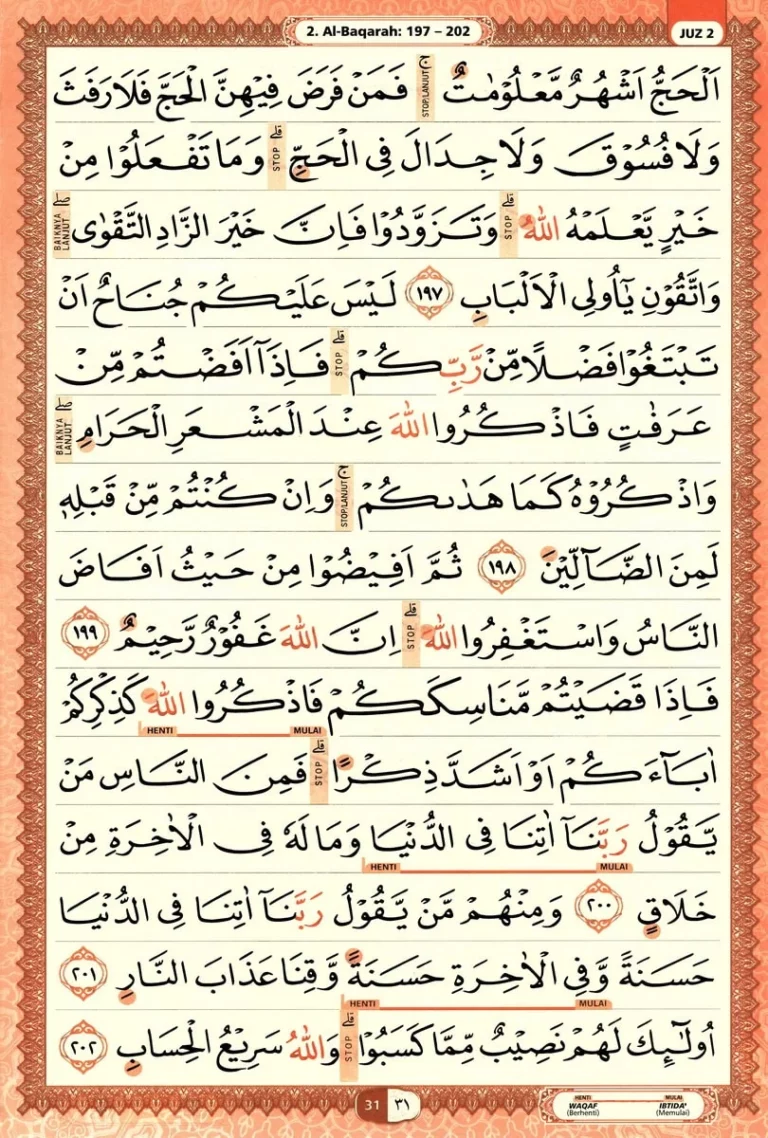 2. Al-Baqarah: 197 – 202
JUZ 2
اَلْحَجُّ اَشْهُرٌ مَّعْلُوْمٰتٌ ۚ STOP/LANJUT فَمَنْ فَرَضَ فِيْهِنَّ الْحَجَّ فَلَا رَفَثَ
وَلَا فُسُوْقَ وَلَا جِدَالَ فِى الْحَجِّ ۗ STOP وَمَا تَفْعَلُوْا مِنْ
خَيْرٍ يَّعْلَمْهُ اللّٰهُ ۗ STOP وَتَزَوَّدُوْا فَاِنَّ خَيْرَ الزَّادِ التَّقْوٰى ۖ BAIKNYA LANJUT
وَاتَّقُوْنِ يٰٓاُولِى الْاَلْبَابِ ١٩٧ لَيْسَ عَلَيْكُمْ جُنَاحٌ اَنْ
تَبْتَغُوْا فَضْلًا مِّنْ رَّبِّكُمْ ۗ STOP فَاِذَآ اَفَضْتُمْ مِّنْ
عَرَفٰتٍ فَاذْكُرُوا اللّٰهَ عِنْدَ الْمَشْعَرِ الْحَرَامِ ۖ BAIKNYA LANJUT
وَاذْكُرُوْهُ كَمَا هَدٰىكُمْ ۚ STOP/LANJUT وَاِنْ كُنْتُمْ مِّنْ قَبْلِهٖ
لَمِنَ الضَّاۤلِّيْنَ ١٩٨ ثُمَّ اَفِيْضُوْا مِنْ حَيْثُ اَفَاضَ
النَّاسُ وَاسْتَغْفِرُوا اللّٰهَ ۗ STOP اِنَّ اللّٰهَ غَفُوْرٌ رَّحِيْمٌ ١٩٩
فَاِذَا قَضَيْتُمْ مَّنَاسِكَكُمْ فَاذْكُرُوا اللّٰهَ كَذِكْرِكُمْ
HENTI MULAI
اٰبَاۤءَكُمْ اَوْ اَشَدَّ ذِكْرًا ۗ STOP فَمِنَ النَّاسِ مَنْ
يَّقُوْلُ رَبَّنَآ اٰتِنَا فِى الدُّنْيَا وَمَا لَهٗ فِى الْاٰخِرَةِ مِنْ
HENTI MULAI
خَلَاقٍ ٢٠٠ وَمِنْهُمْ مَّنْ يَّقُوْلُ رَبَّنَآ اٰتِنَا فِى الدُّنْيَا
حَسَنَةً وَّفِى الْاٰخِرَةِ حَسَنَةً وَّقِنَا عَذَابَ النَّارِ ٢٠١
HENTI MULAI
اُولٰۤىِٕكَ لَهُمْ نَصِيْبٌ مِّمَّا كَسَبُوْا ۗ STOP وَاللّٰهُ سَرِيْعُ الْحِسَابِ ٢٠٢
31 ٣١
HENTI MULAI
WAQAF IBTIDA'
(Berhenti) (Memulai)